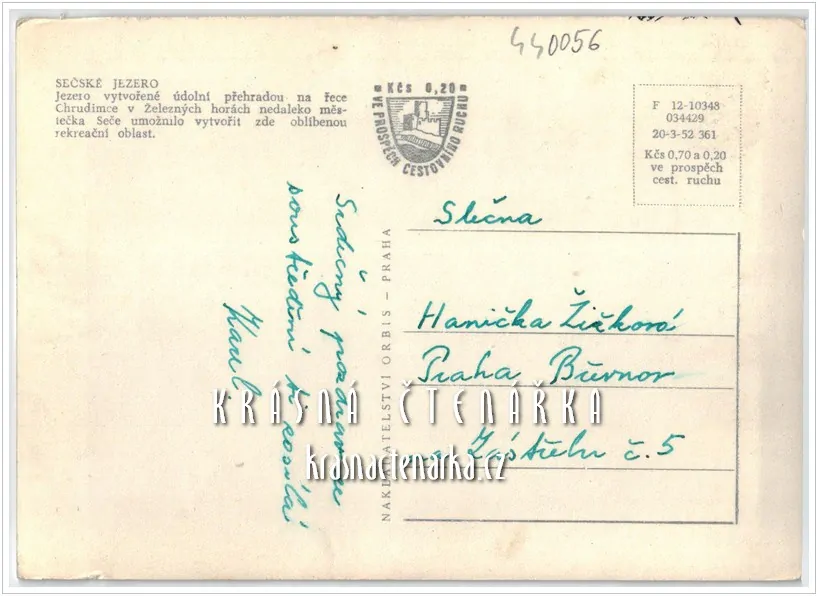 440056
SEČSKÉ JEZERO
Jezero vytvořené údolní přehradou na řece
Chrudimce v Železných horách nedaleko měs-
tečka Seče umožnilo vytvořit zde oblíbenou
rekreační oblast.
Kčs 0,20
VE PROSPĚCH CESTOVNÍHO RUCHU
F 12-10348
034429
20-3-52 361
Kčs 0,70 a 0,20
ve prospěch
cest. ruchu
Srdečný pozdrav ze
soustředění si posílá
Karel.
NAKLADATELSTVÍ ORBIS – PRAHA
Slečna
Hanička Žižková
Praha Břevnov
Zástřelu č. 5
KRÁSNÁ ČTENÁŘKA
krasnactenarka.cz